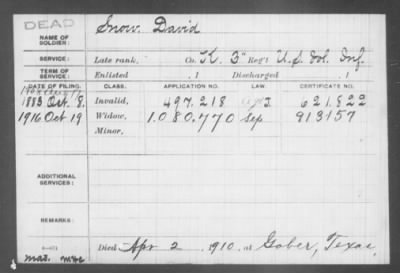 DEAD
NAME OF SOLDIER: Snow, David
SERVICE: Late rank, Co. K. 3" Reg't U.S. Vol. Inf.
TERM OF SERVICE: Enlisted , 1 Discharged , 1
DATE OF FILING. CLASS. APPLICATION NO. LAW. CERTIFICATE NO.
1883 Oct. 8. Invalid, 497.218 621.822
1916 Oct 19 Widow, 1.080.770 Sep 913157
Minor,
ADDITIONAL SERVICES:
REMARKS:
Died Apr 2, 1910, at Gober, Texas,